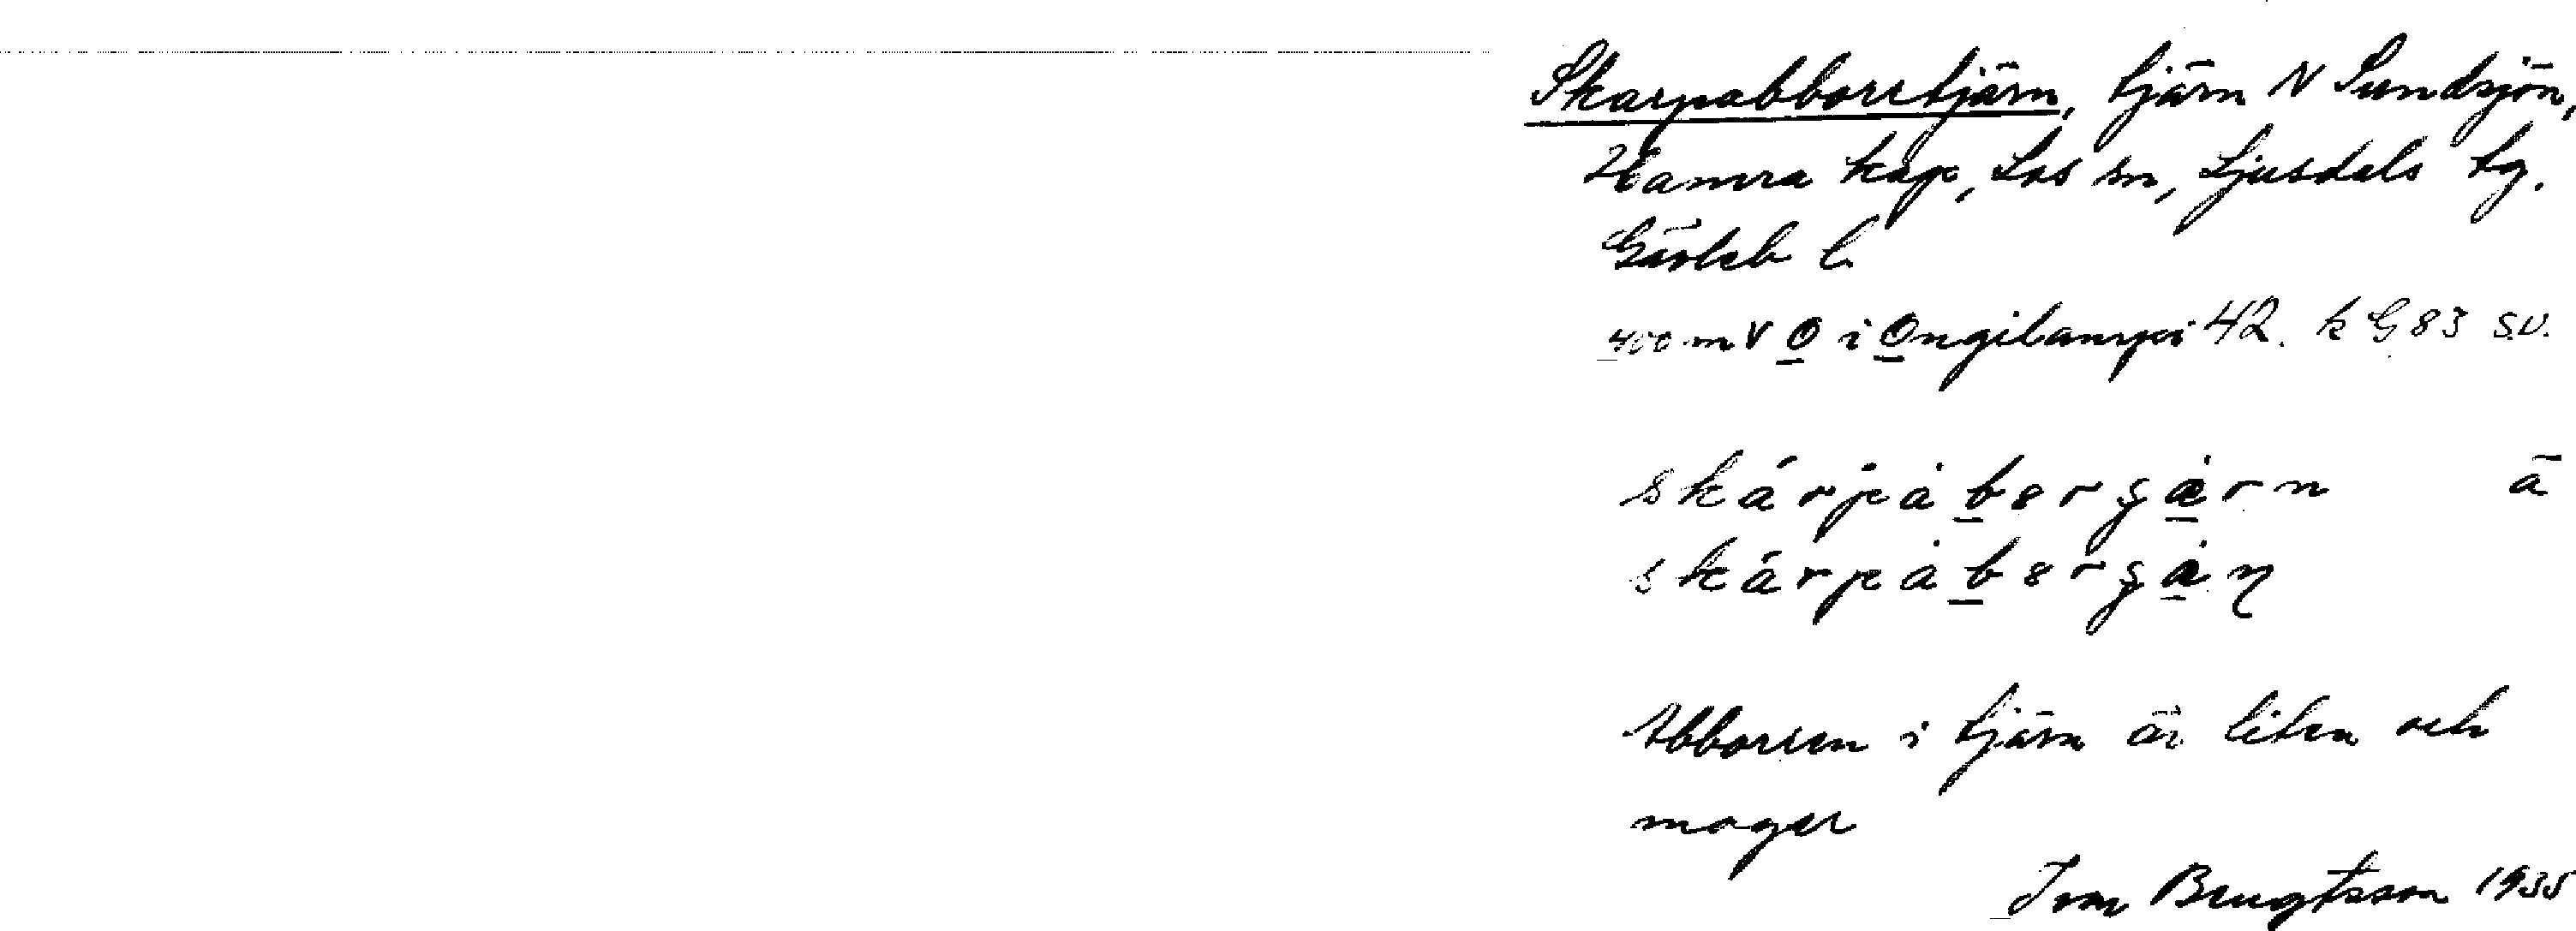 Skarpabborrtjärn, tjärn N Sundsjön,
Hamra kap, Los sn, Ljusdels tg.
Gävleb l.
400 m V O i Ongilampi 42. k G 83 SV.
ä
Abborren i tjärn är liten och
mager
Ivan Bengtsson 1935